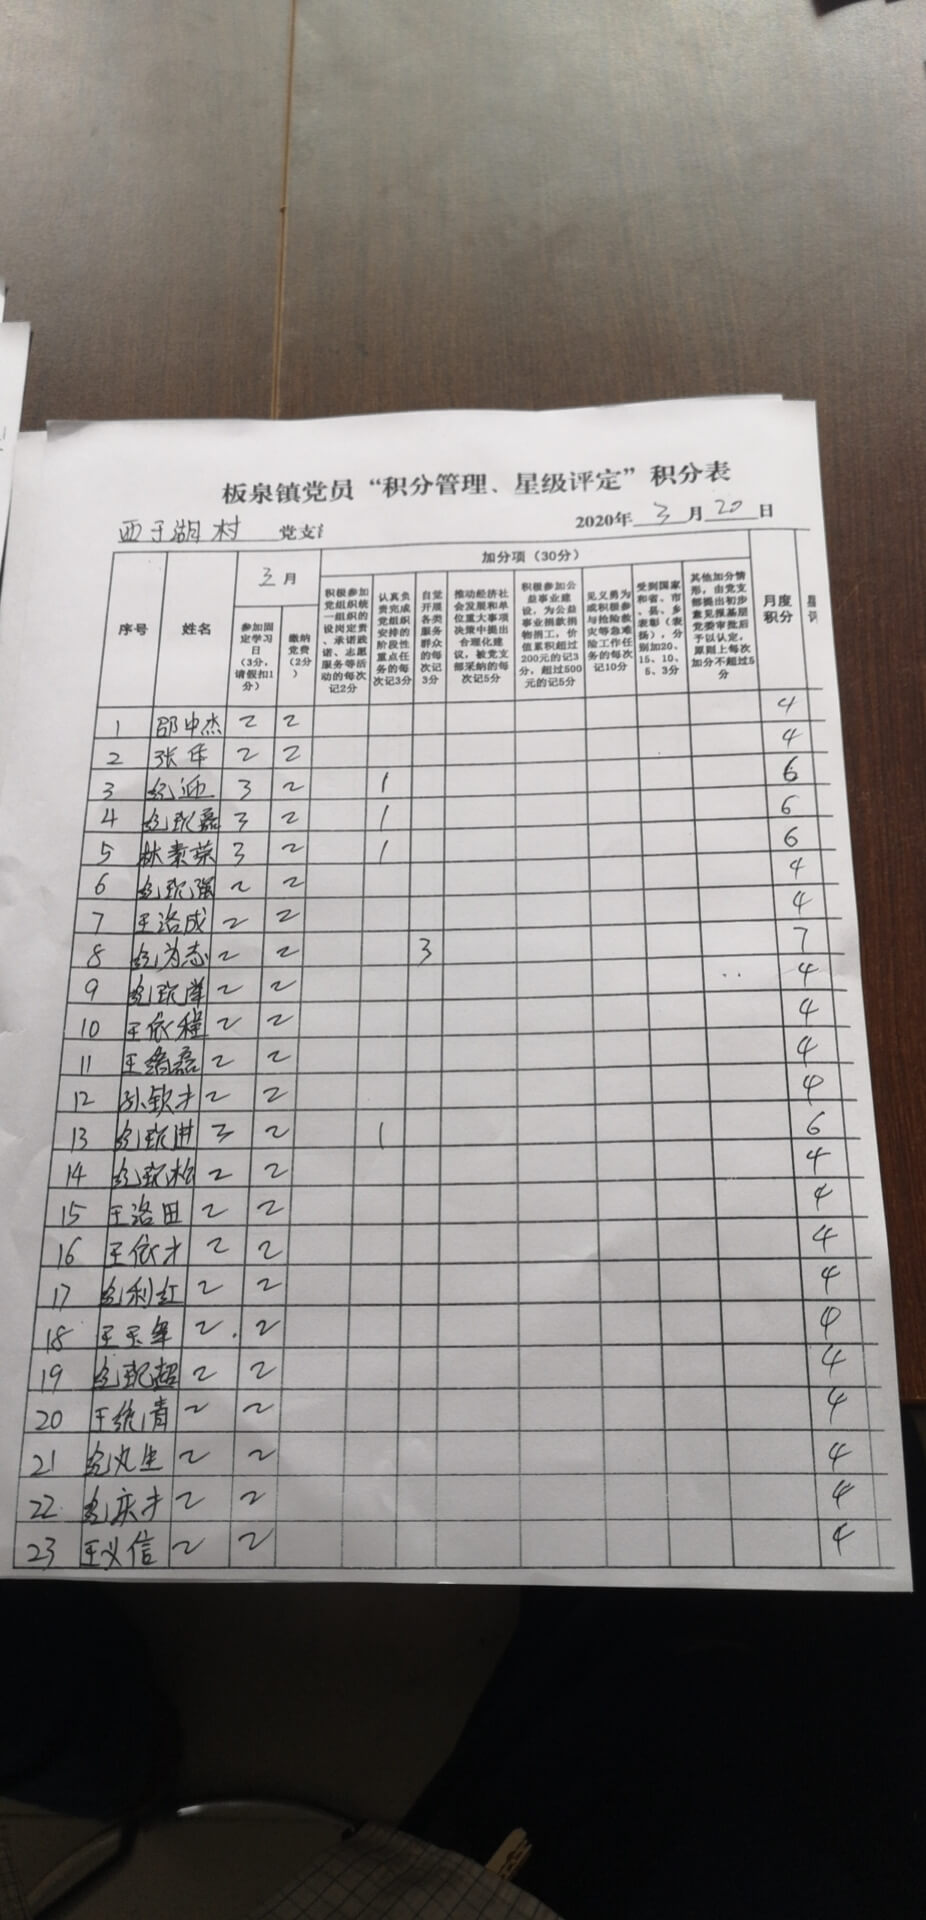 板泉镇党员“积分管理、星级评定”积分表
西于湖村 党支
2020年 3 月 20 日
序号 姓名 3月 加分项（30分） 月度积分
参加固定学习日（3分，请假扣1分）
缴纳党费（2分）
积极参加党组织统一组织的设岗定责、承诺践诺、志愿服务等活动的每次记2分
认真负责完成党组织安排的阶段性重点任务的每次记3分
自觉开展各类服务群众的每次记3分
推动经济社会发展和单位重大事项决策中提出合理化建议，被党支部采纳的每次记5分
积极参加公益事业建设，为公益事业捐款捐物捐工，价值累积超过200元的记3分，超过500元的记5分
见义勇为或积极参与抢险救灾等急难险工作任务的每次记10分
受到国家和省、市、县、乡表彰（表扬），分别加20、15、10、5、3分
其他加分情形，由党支部提出初步意见报基层党委审批后予以认定，原则上每次加分不超过5分
1 邵中杰 2 2 4
2 张年 2 2 4
3 纪迎 3 2 1 6
4 纪现磊 3 2 1 6
5 林素荣 3 2 1 6
6 纪现强 2 2 4
7 王洛成 2 2 4
8 纪为志 2 2 3 7
9 纪现 2 2 4
10 王依程 2 2 4
11 王磊 2 2 4
12 孙钦才 2 2 4
13 纪现进 3 2 1 6
14 纪现松 2 2 4
15 王洛田 2 2 4
16 王依才 2 2 4
17 纪利红 2 2 4
18 王玉军 2 2 4
19 纪现超 2 2 4
20 王统清 2 2 4
21 纪生 2 2 4
22 纪庆才 2 2 4
23 王义信 2 2 4